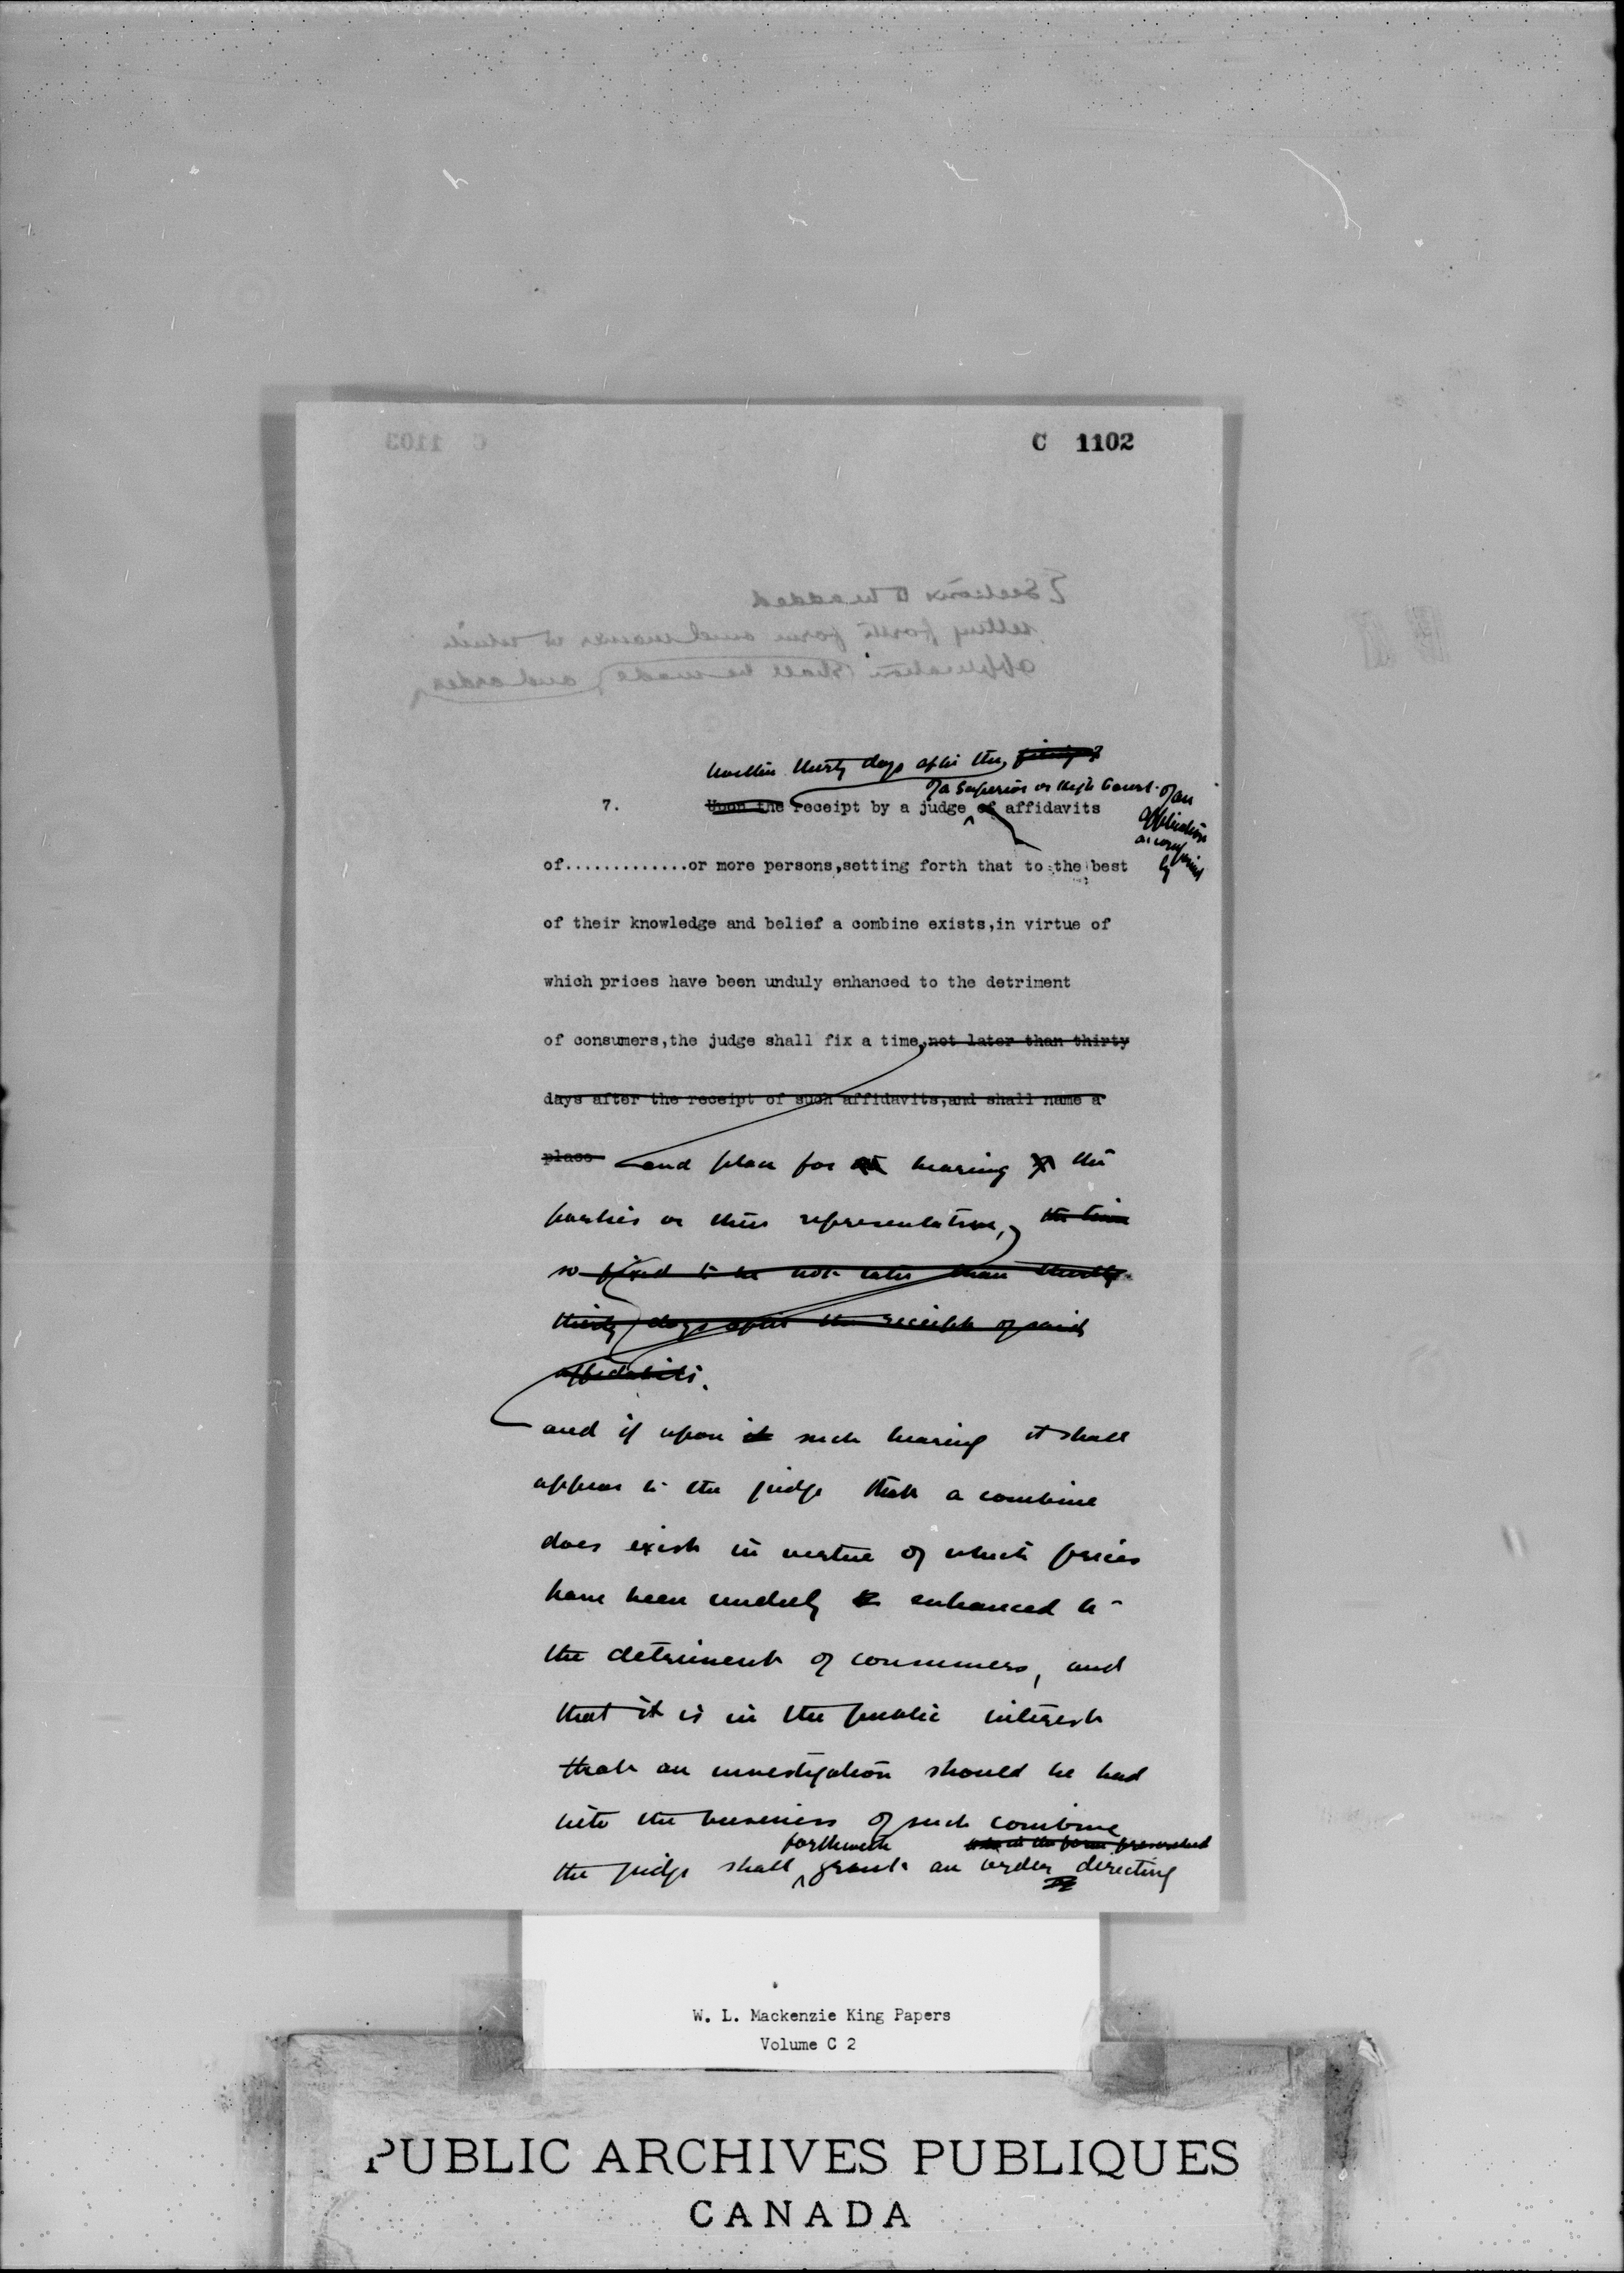 C 1102
Within thirty days after the
of a Superior or High Court of an
7. Upon the receipt by a judge of affidavits
application
accompanied
by
of.............or more persons,setting forth that to the best
of their knowledge and belief a combine exists,in virtue of
which prices have been unduly enhanced to the detriment
of consumers,the judge shall fix a time,not later than thirty
days after the receipt of such affidavits,and shall name a
place and place for hearing the
parties or their representatives, the time
so fixed to be not later than thirty
thirty days after the receipt of said
affidavits.
and if upon it such hearing it shall
appear to the judge that a combine
does exist in virtue of which prices
have been unduly enhanced to
the detriment of consumers, and
that it is in the public interest
that an investigation should be had
into the business of such combine
forthwith in the form prescribed
the judge shall grant an order directing
W. L. Mackenzie King Papers
Volume C 2
PUBLIC ARCHIVES PUBLIQUES
CANADA